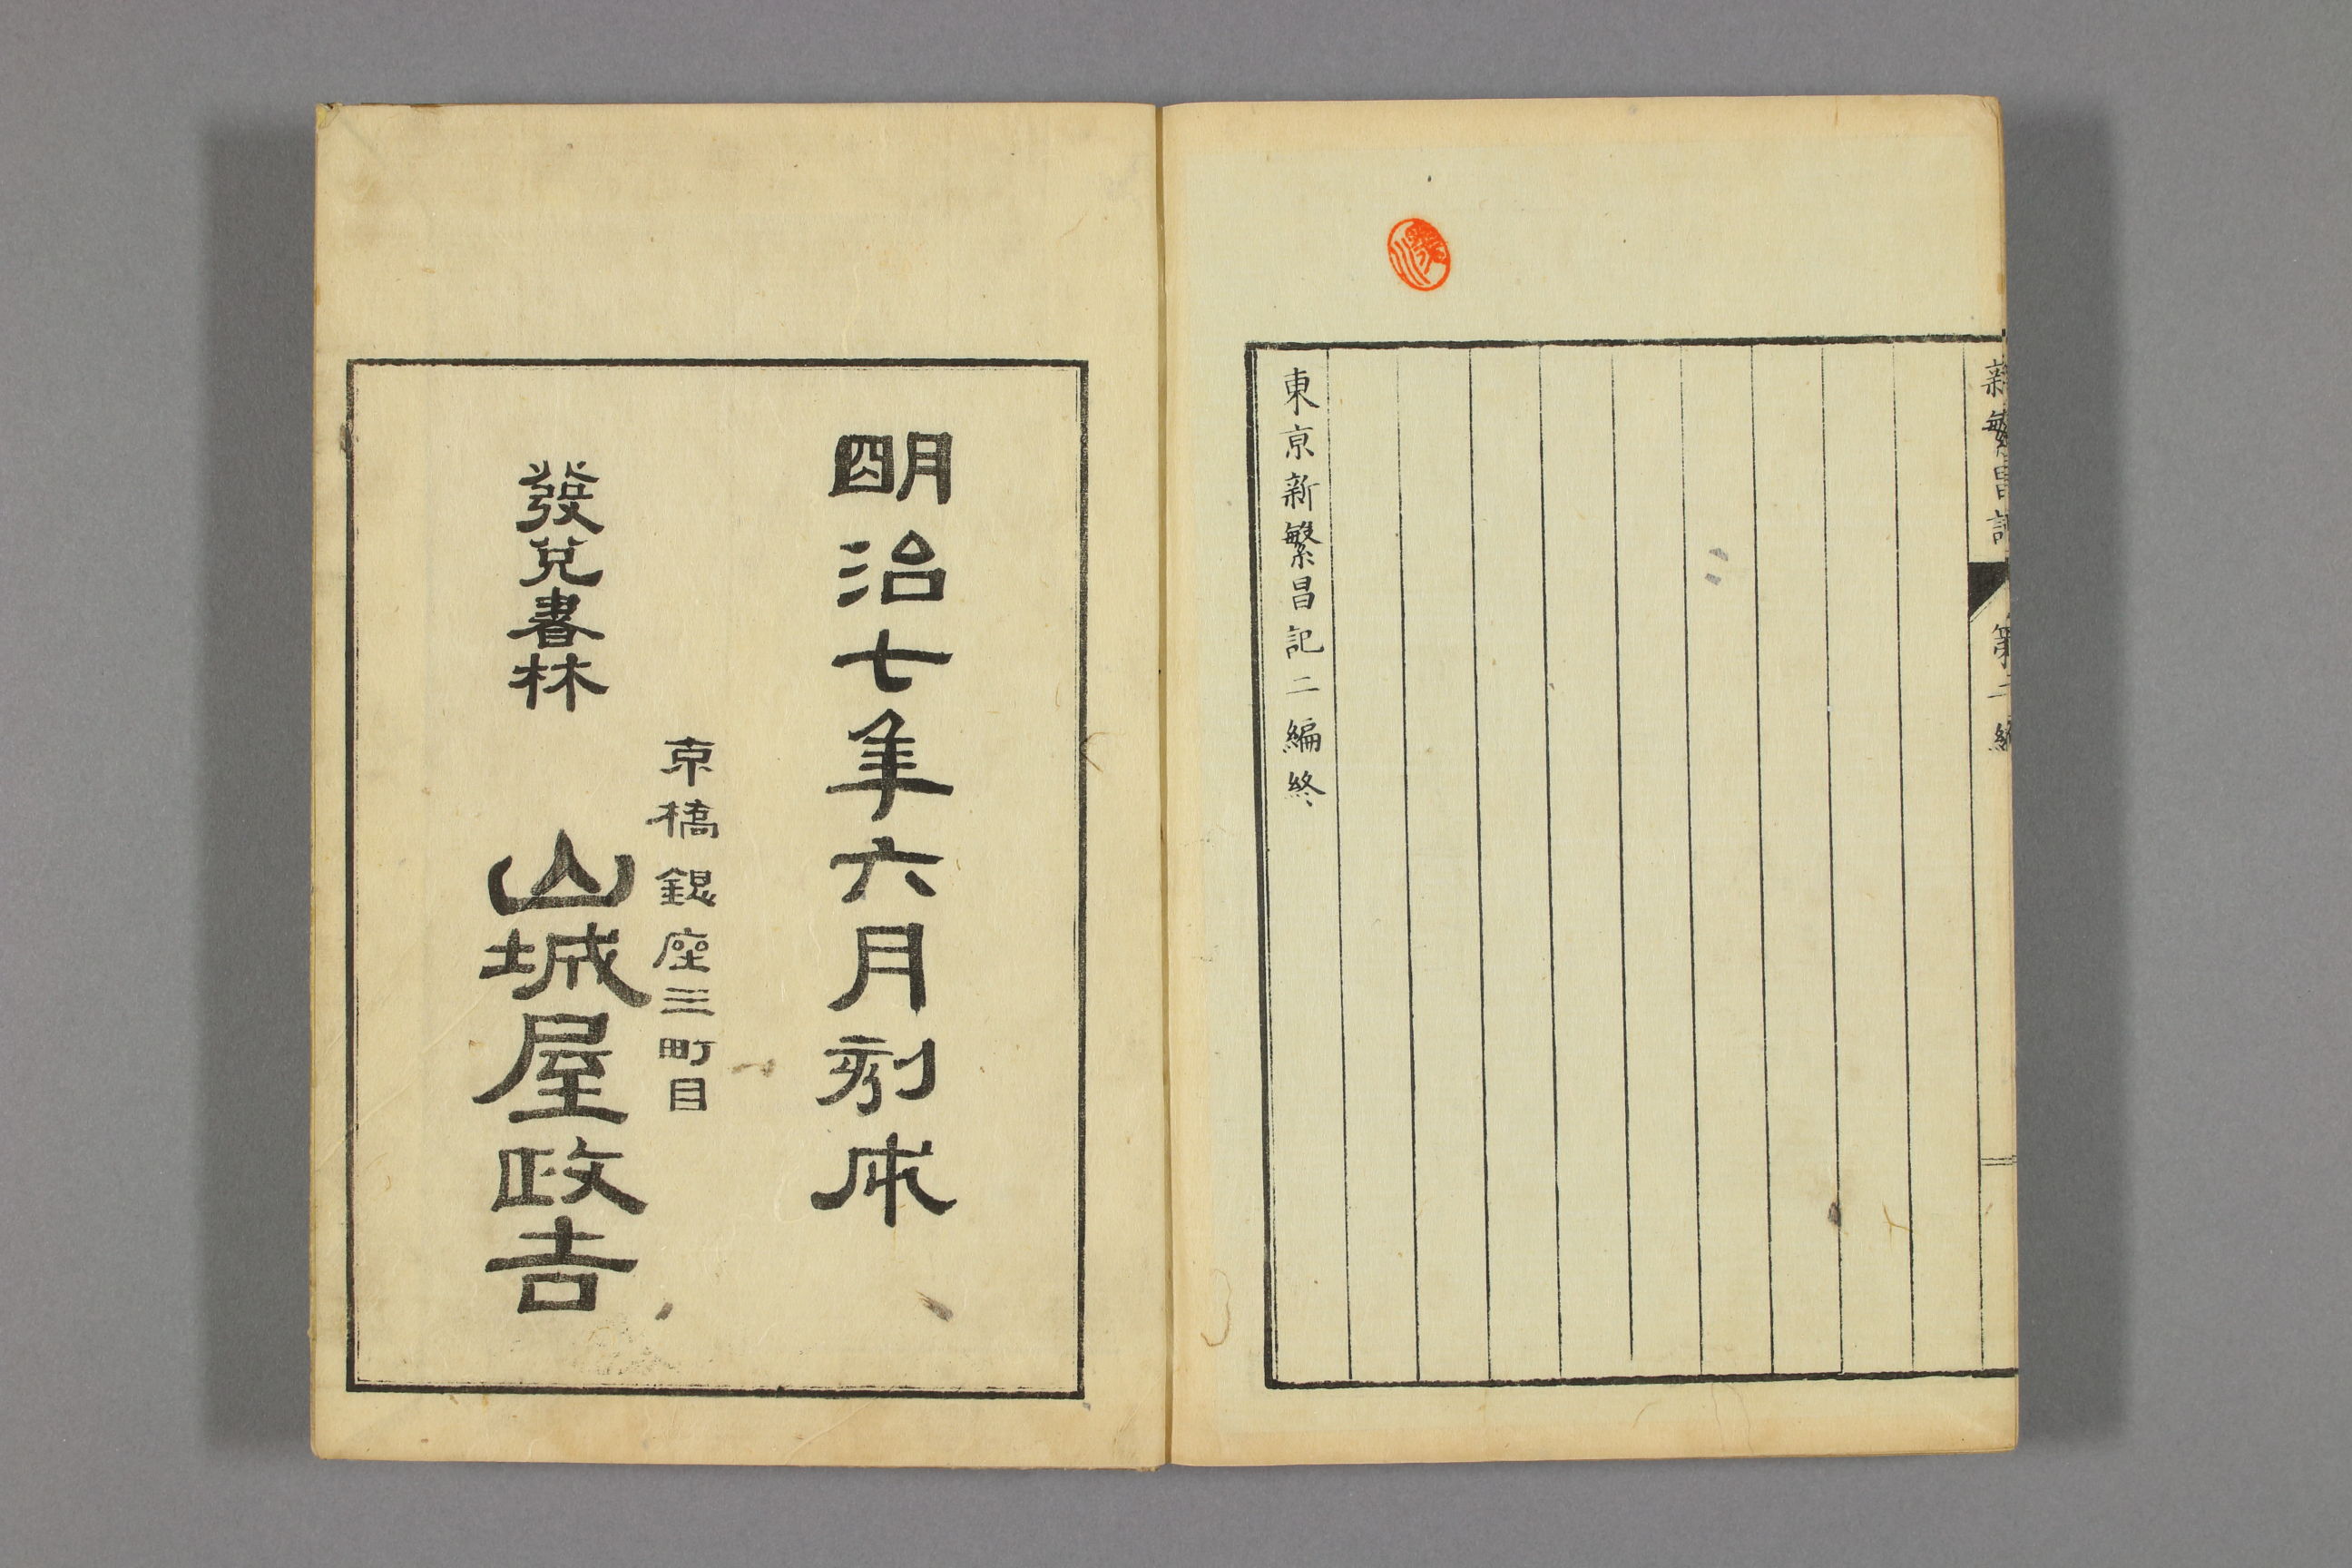 新繁昌記 第二編
東京新繁昌記二編終
明治七年六月刻成
京橋銀座三町目
發兌書林 山城屋政吉